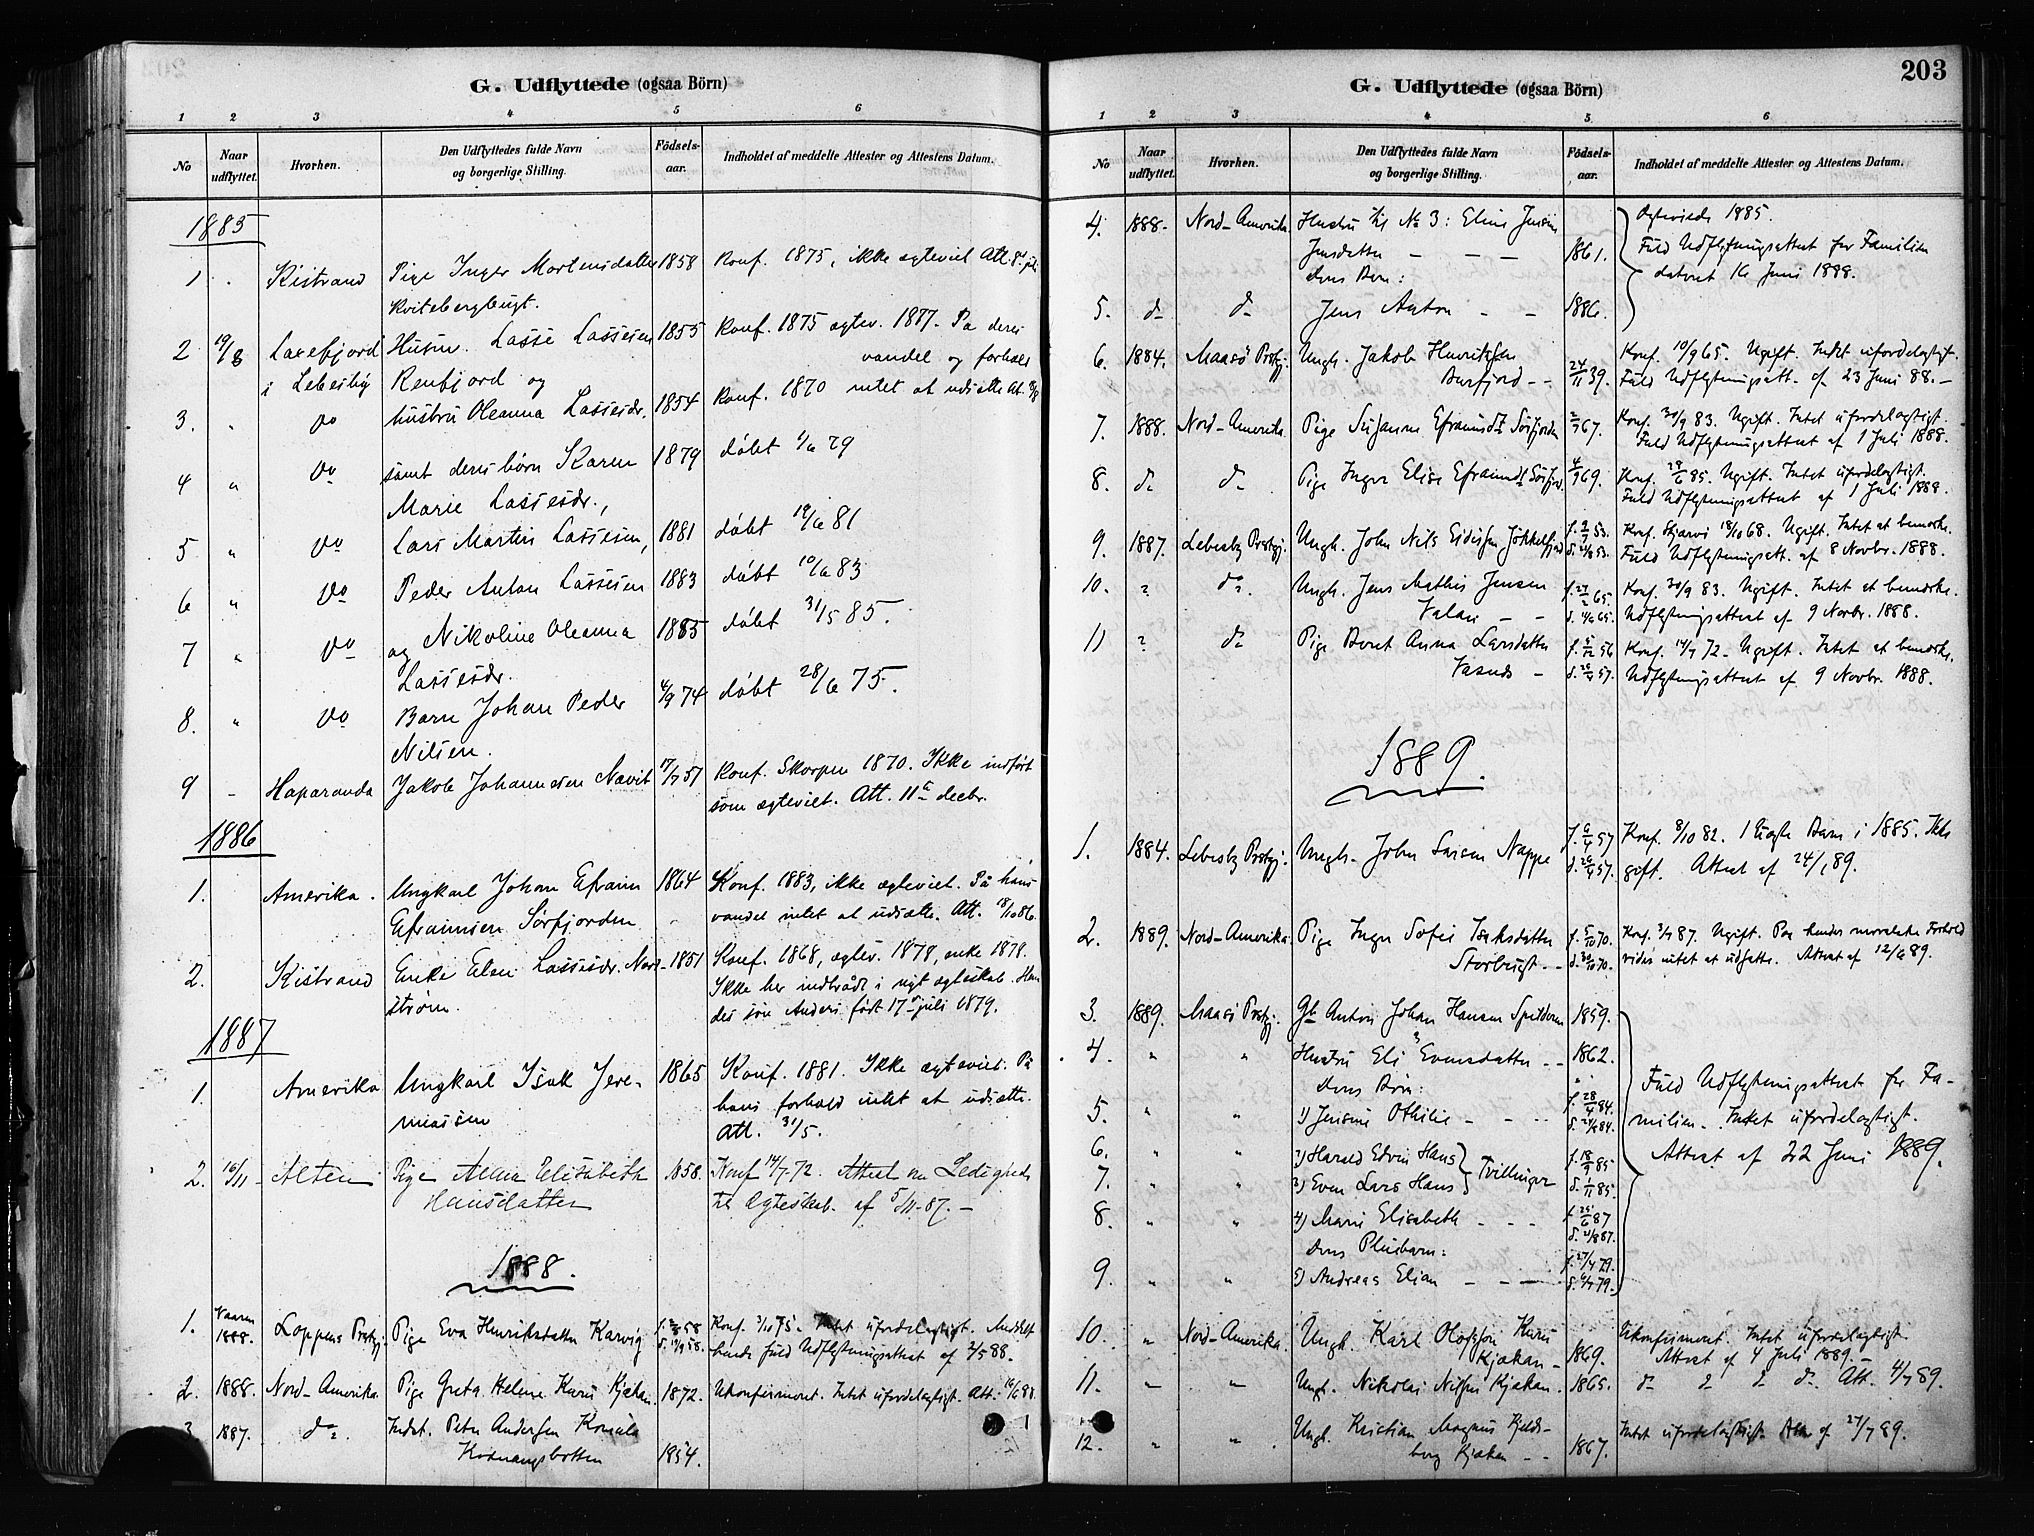 G. Udflyttede (ogsaa Börn)
1 2 3 4 5 6
No Naar udflyttet. Hvorhen. Den Udflyttedes fulde Navn og borgerlige Stilling. Födsels-aar. Indholdet af meddelte Attester og Attestens Datum.
1885
1 Kistrand Pige Inger Mortensdatter 1858 Konf. 1875, ikke ægteviet Att. 8de juli
Kvitebergbugt.
2 19/8 Laxefjord Husm. Lasse Lassesen 1855 Konf. 1875 ægtev. 1877. Pa deres
i Lebesby Renfjord og vandel og forhold
3. " do hustru Oleanna Lassesdr. 1854 Konf. 1870 intet at udsætte
4 " do samt deres børn Karen 1879 døbt 1/6 79
Marie Lassesdr.,
5 " do Lars Martin Lassesen, 1881 døbt 19/6 81
6 " do Peder Anton Lassesen 1883 døbt 10/6 83
7 " do og Nikoline Oleanna 1885 døbt 31/5 85.
Lassesdr.
8. " do Barn Johan Peder 4/9 74 døbt 28/6 75.
Nilsen.
9 - Haparanda Jakob Johannesen Navit 17/7 51 Konf. Skorpen 1870. Ikke indført
som ægteviet. Att. 11te decbr.
1886
1. Amerika. Ungkarl Johan Efraim 1864 Konf. 1883, ikke ægteviet. På hans
Efraimsen Sørfjorden vandel intet at udsætte. Att. 18/10 86.
2. Kistrand Enke Elen Lassesdr. Nord- 1851 Konf. 1868, ægtev. 1878, enke 1878.
strøm. Ikke her indtrådt i nyt ægteskab. Hen
des søn Anders født 17de juli 1879.
1887
1. Amerika Ungkarl Isak Jere- 1865 Konf. 1881. Ikke ægteviet. På
miassen hans forhold intet at udsætte.
Att. 31/5.
2. 16/11 Alten Pige Anna Elisabeth 1858. Konf 14/7 72. Attest om Ledighed
Hansdatter til Ægteskab. af 5/11-87.-
1888.
1. 1888. Loppens Prstgj. Pige Eva Henriksdatter Karvig Konf. 3/10 75. Intet ufordelagtigt. Meddelt
hende fuld Udflytningsattest af 2/5 88.
2. 1888. Nord-Amerika Pige Greta Helene Kjækan. 1872. Ukonfirmeret. Intet ufordelagtigt. Att. 16/6 88.
3 1887. do. Indst. Peter Andersen
Kvænangsbotten 1854.
203
G. Udflyttede (ogsaa Börn)
1 2 3 4 5 6
No Naar udflyttet. Hvorhen. Den Udflyttedes fulde Navn og borgerlige Stilling. Födsels-aar. Indholdet af meddelte Attester og Attestens Datum.
4. 1888. Nord-Amerika Hustru til No 3: Eline Jensine Ægteviede 1885.
Jensdatter - - - 1861. Fuld Udflytningsattest for Familien
deres Barn: dateret 16 Juni 1888.
5. do do Jens Anton - - 1886.
6. 1884. Maasö Prstgj. Ungk. Jakob Henriksen Konf. 10/9 65. Ugift. Intet ufordelagtigt.
Burfjord - - 24/11 39. Fuld Udflytningsatt. af 23 Juni 88.-
7. 1888. Nord-Amerika Pige Susanne Efraimsdtr Sørfjorden 67. Konf. 30/9 83. Ugift. Intet ufordelagtigt.
Fuld Udflytningsattest af 1 Juli 1888.
8. do do Pige Inger Elise Efraimsdtr Sørfjord. 4/9 69. Konf. 85. Ugift. Intet ufordelagtigt.
Fuld Udflytningsattest af 1 Juli 1888.
9. 1887. Lebesby Prstgj. Ungk. John Nils Eidissen Jökkelfjord 53. Konf. Skjærvö 18/10 68. Ugift. Intet at bemærke.
Fuld Udflytningsatt. af 8 Novbr. 1888.
10. " do. Ungk. Jens Mathis Jensen f. 27/2 65. Konf. 30/9 83. Ugift. Intet at bemærke.
Valan - - d. 11/6 65. Udflytningsattest af 9 Novbr. 1888.
11 " do Pige Beret Anna Larsdatter f. 5/12 56 Konf. 14/7 72. Ugift. Intet at bemærke.
57. Udflytningsattest af 9 Novbr. 1888.
1889.
1. 1884. Lebesby Prstgj. Ungk. John Nappe f. 57 Konf. 8/10 82. 1 Uægte Barn i 1885. Ikke
57. gift. Attest af 24/1 89.
2. 1889. Nord-Amerika. Pige Inger Sofie Isaksdatter f. 5/10 70. Konf. 3/7 87. Ugift. Paa hendes moralske Forhold
Storbugt. - d. 30/10 70. vides intet at udsætte. Attest af 12/6 89.
3. 1889. Maasö Prstgj. Gb Anton Johan Hansen Spildern 1859.
4. " " Hustru Eli Evensdatter - - 1862.
deres Börn:
5. " " 1) Jensine Othilie - - f. 28/4 84. Fuld Udflytningsattest for Fa-
84. milien. Intet ufordelagtigt.
6. " " 2) Harald Edvin Hans Tvillinger f. 18/9 85 Attest af 22 Juni 1889.
7. " " 3) Even Lars Hans d. 1/11 85.
8. " " 4) Marie Elisabeth - - - f. 25/6 87
deres Pleiebarn: d. 21/8 87.
9. " " 5) Andreas Elian - - - f. 27/4 79.
79.
10. " Nord-Amerika. Ungk. Karl Olufsen Ukonfirmeret. Intet ufordelagtigt
Kjækan - 1869. Attest af 4 Juli 1889.-
11. - - Ungk. Nikolai Nilsen Kjækan. 1865. do " " do. Att. 4/7 89.
Ungk. Kristian Magnus Kjelds- Intet ufordelagtigt. af 27/7 89.
12. " " berg Kjækan - - 1867.